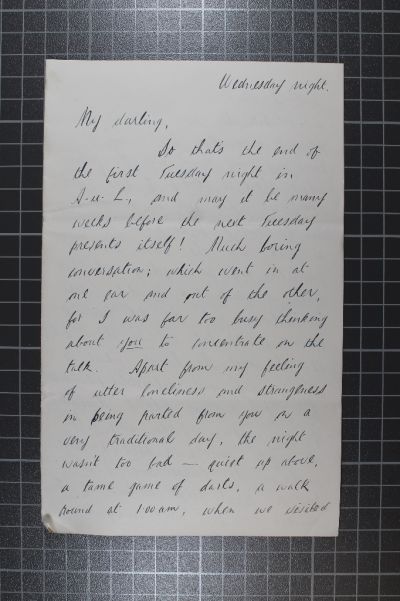 Wednesday night.
My darling,
So that's the end of
the first Tuesday night in
A-u-L, and may it be many
weeks before the next Tuesday
presents itself! Much boring
conversation; which went in at
one ear and out of the other,
for I was far too busy thinking
about you to concentrate on the
talk. Apart from my feeling
of utter loneliness and strangeness
in being parted from you on a
very traditional day, the night
wasn't too bad — quiet up above,
a tame game of darts, a walk
round at 1.00am, when we visited